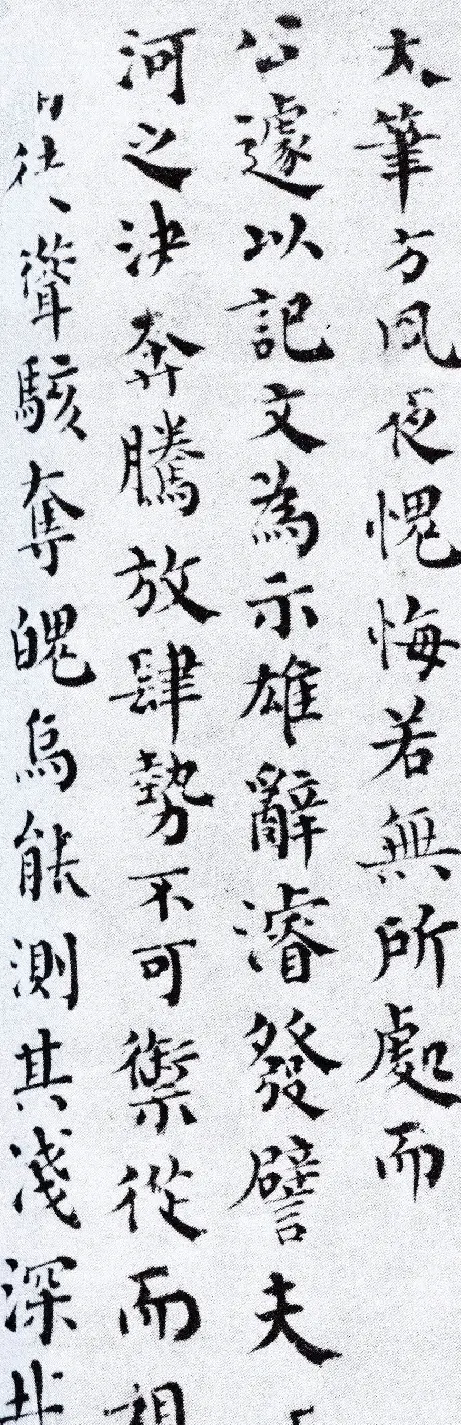 大筆方夙夜愧悔若無所處而
公遽以記文為示雄辭濬發譬夫
河之決奔騰放肆勢不可禦從而
聳駭奪魄烏能測其淺深